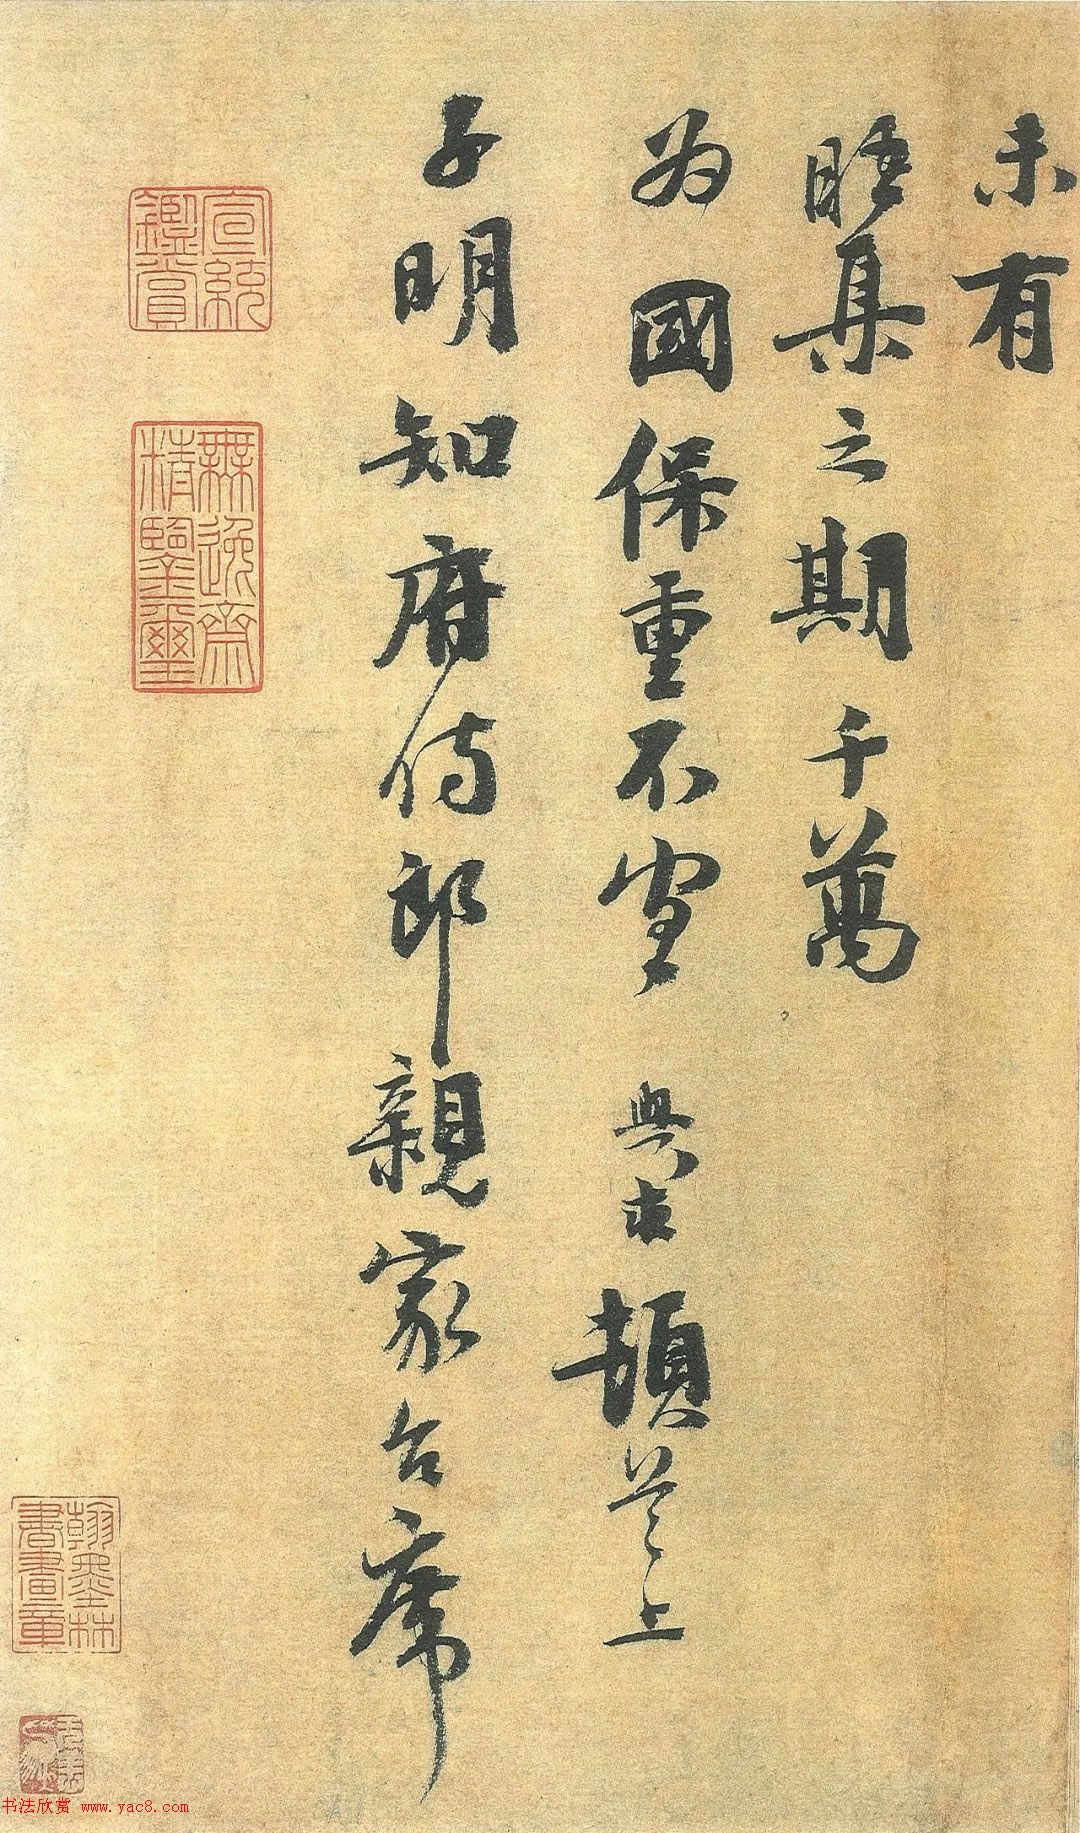 未有
睦集之期千萬
為國保重不宣 與求頓首上
子明知府侍郎親家台席
宣統鑑賞
無逸齋精鑒璽
翰墨林書畫章
书法欣赏 www.yac8.com